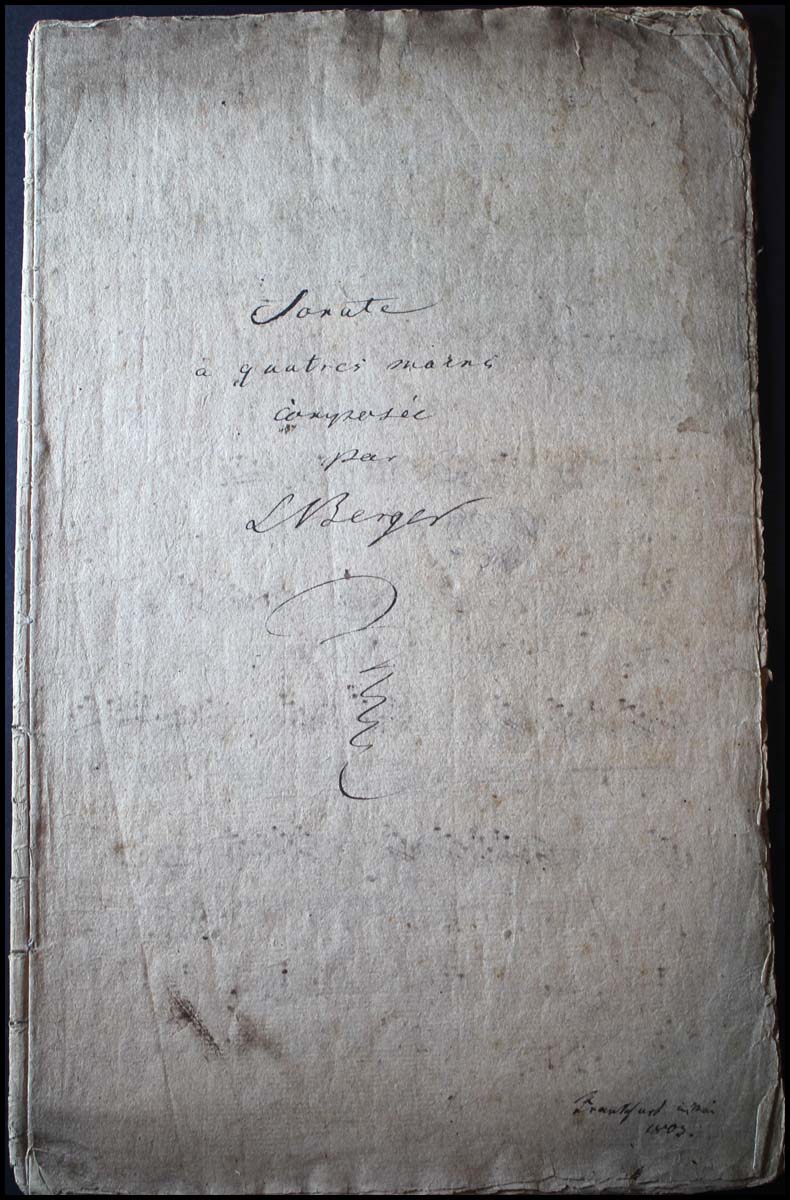 Sonate
a quatres mains
composée
par
L Berger
Frankfurt
1803.